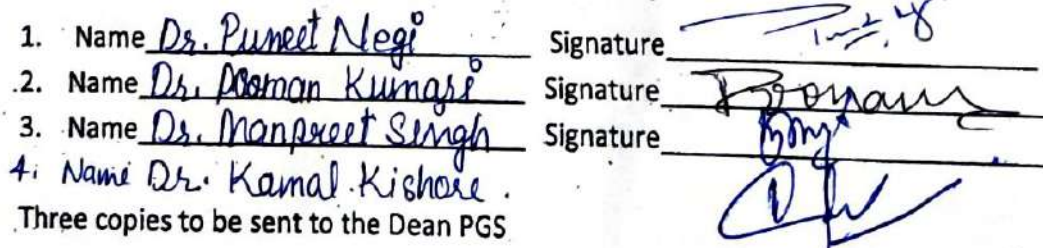 1. Name Dr. Puneet Negi Signature
2. Name Dr. Pooman Kumari Signature Poonam
3. Name Dr. Manpreet Singh Signature
4. Name Dr. Kamal Kishore.
Three copies to be sent to the Dean PGS